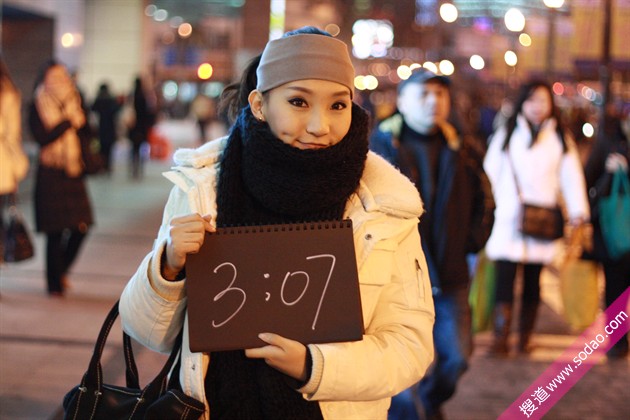 3:07
搜道 www.sodao.com